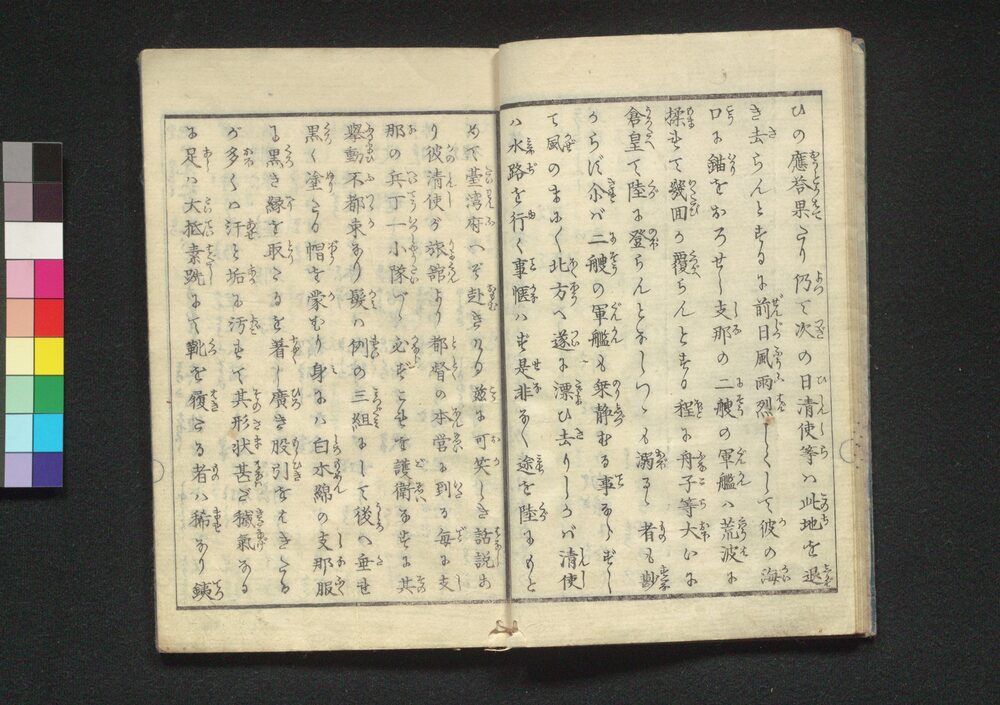 ひの應答果たり仍て次の日清使等ハ此地を退
き去らんとするに前日風雨烈しくして彼の海
口に錨をおろせし支那の二艘の軍艦ハ荒波に
揉れて幾回か覆らんとする程に舟子等大いに
倉皇て陸に登らんとなしつゝも溺るゝ者も尠
からず尓バ二艘の軍艦も乗静むる事ならずし
て風のまにまに北方へ遂に漂ひ去りしかバ清使
ハ水路を行く事愜ハず是非なく途を陸にもと
めて臺湾府へぞ赴きける茲に可笑しき話説あ
り彼清使が旅館より都督の本営に到る毎に支
那の兵丁一小隊づゝ必ずこれを護衛なすに其
擧動不都束なり髪ハ例の三組にして後へ垂せ
黒く塗たる帽を蒙むり身にハ白木綿の支那服
に黒き縁を取たるを着し廣き股引をはきたる
が多くハ汗と垢に汚れて其形状甚だ穢氣なる
に足ハ大抵素跣にて靴を履たる者ハ稀なり銕